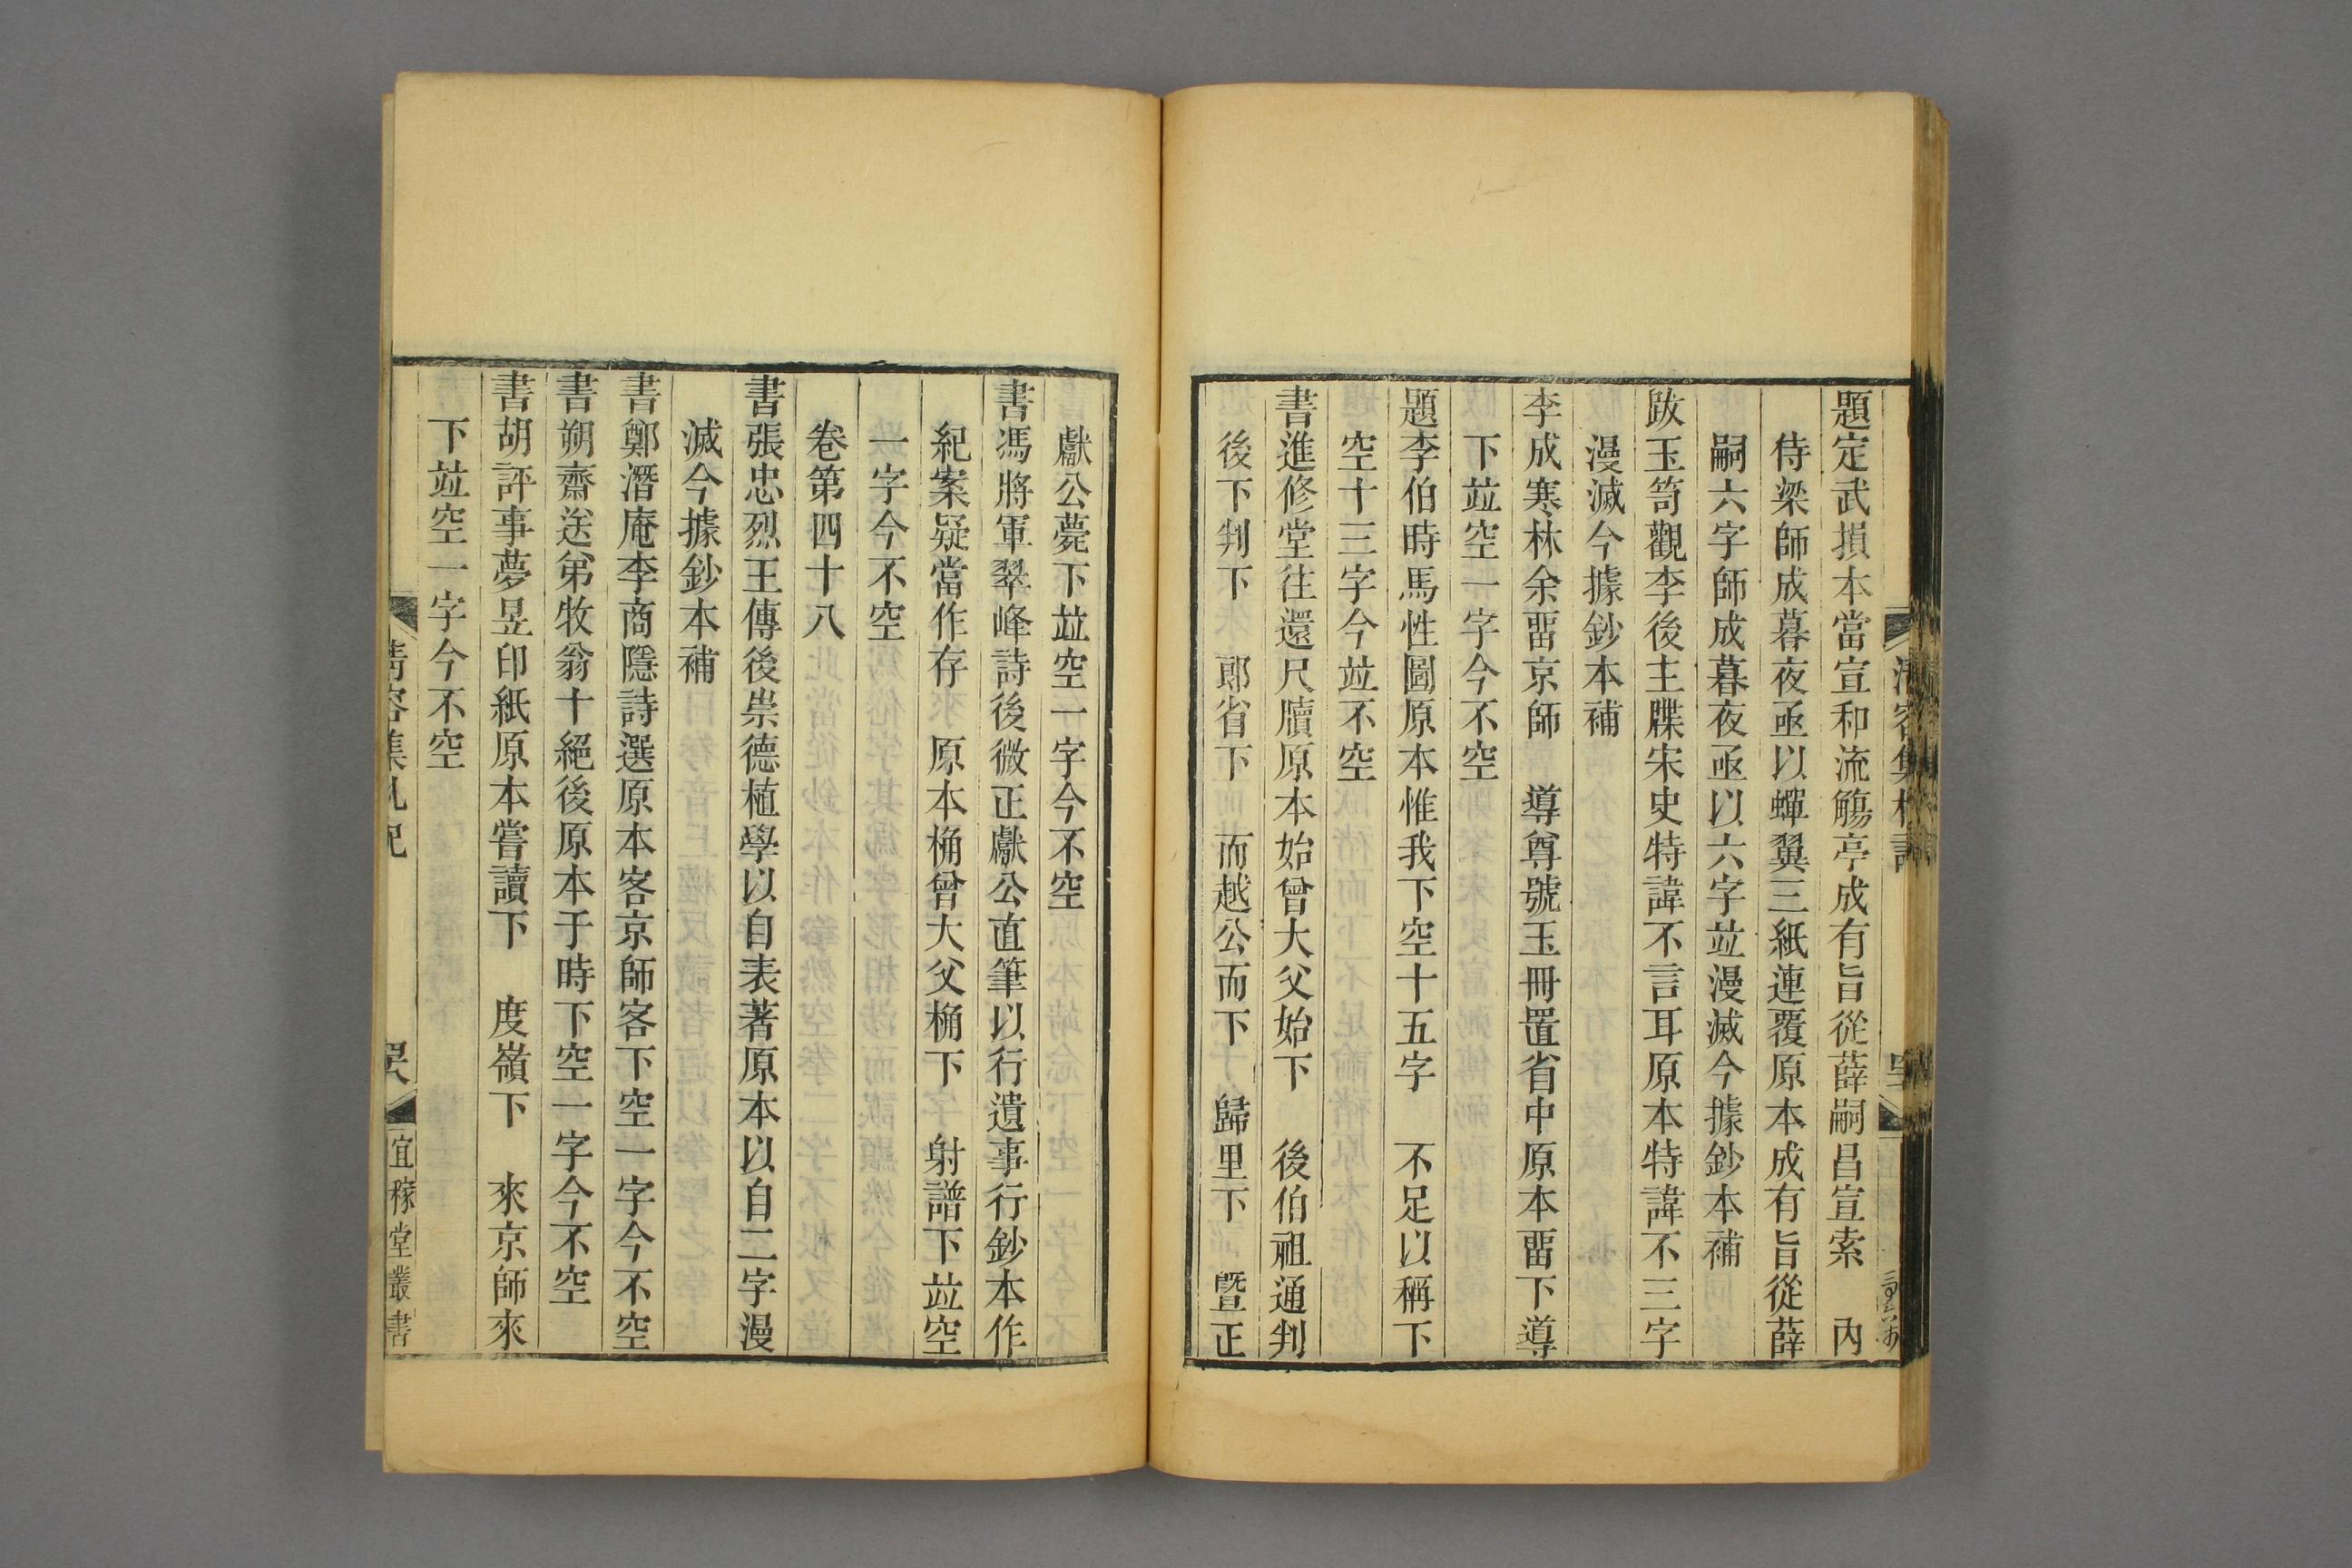 題定武損本當宣和流觴亭成有旨從薛嗣昌宣索　內
侍梁師成暮夜亟以蟬翼三紙連覆原本成有旨從薛
嗣六字師成暮夜亟以六字竝漫滅今據鈔本補
跋玉笥觀李後主牒宋史特諱不言耳原本特諱不三字
漫滅今據鈔本補
李成寒林余畱京師　導尊號玉冊置省中原本畱下導
下竝空一字今不空
題李伯時馬性圖原本惟我下空十五字　不足以稱下
空十三字今竝不空
書進修堂往還尺牘原本始曾大父始下　後伯祖通判
後下判下　郎省下　而越公而下　歸里下　暨正
獻公薨下竝空一字今不空
書馮將軍翠峰詩後微正獻公直筆以行遺事行鈔本作
紀案疑當作存　原本桷曾大父桷下　射譜下竝空
一字今不空
卷第四十八
書張忠烈王傳後祟德植學以自表著原本以自二字漫
滅今據鈔本補
書鄭潛庵李商隱詩選原本客京師客下空一字今不空
書朔齋送弟牧翁十絕後原本于時下空一字今不空
書胡評事夢昱印紙原本嘗讀下　度嶺下　來京師來
下竝空一字今不空
清容集札記
宜稼堂叢書